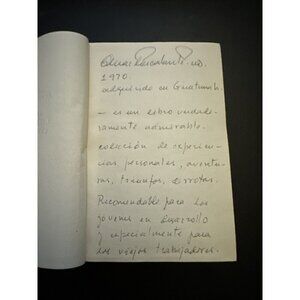 1970.
adquirido en Guatemala
— es un libro verdade-
ramente admirable.
colección de experien-
cias personales, aventu-
ras, triunfos, derrotas.
Recomendable para los
jóvenes en desarrollo
y especialmente para
los viejos trabajadores.